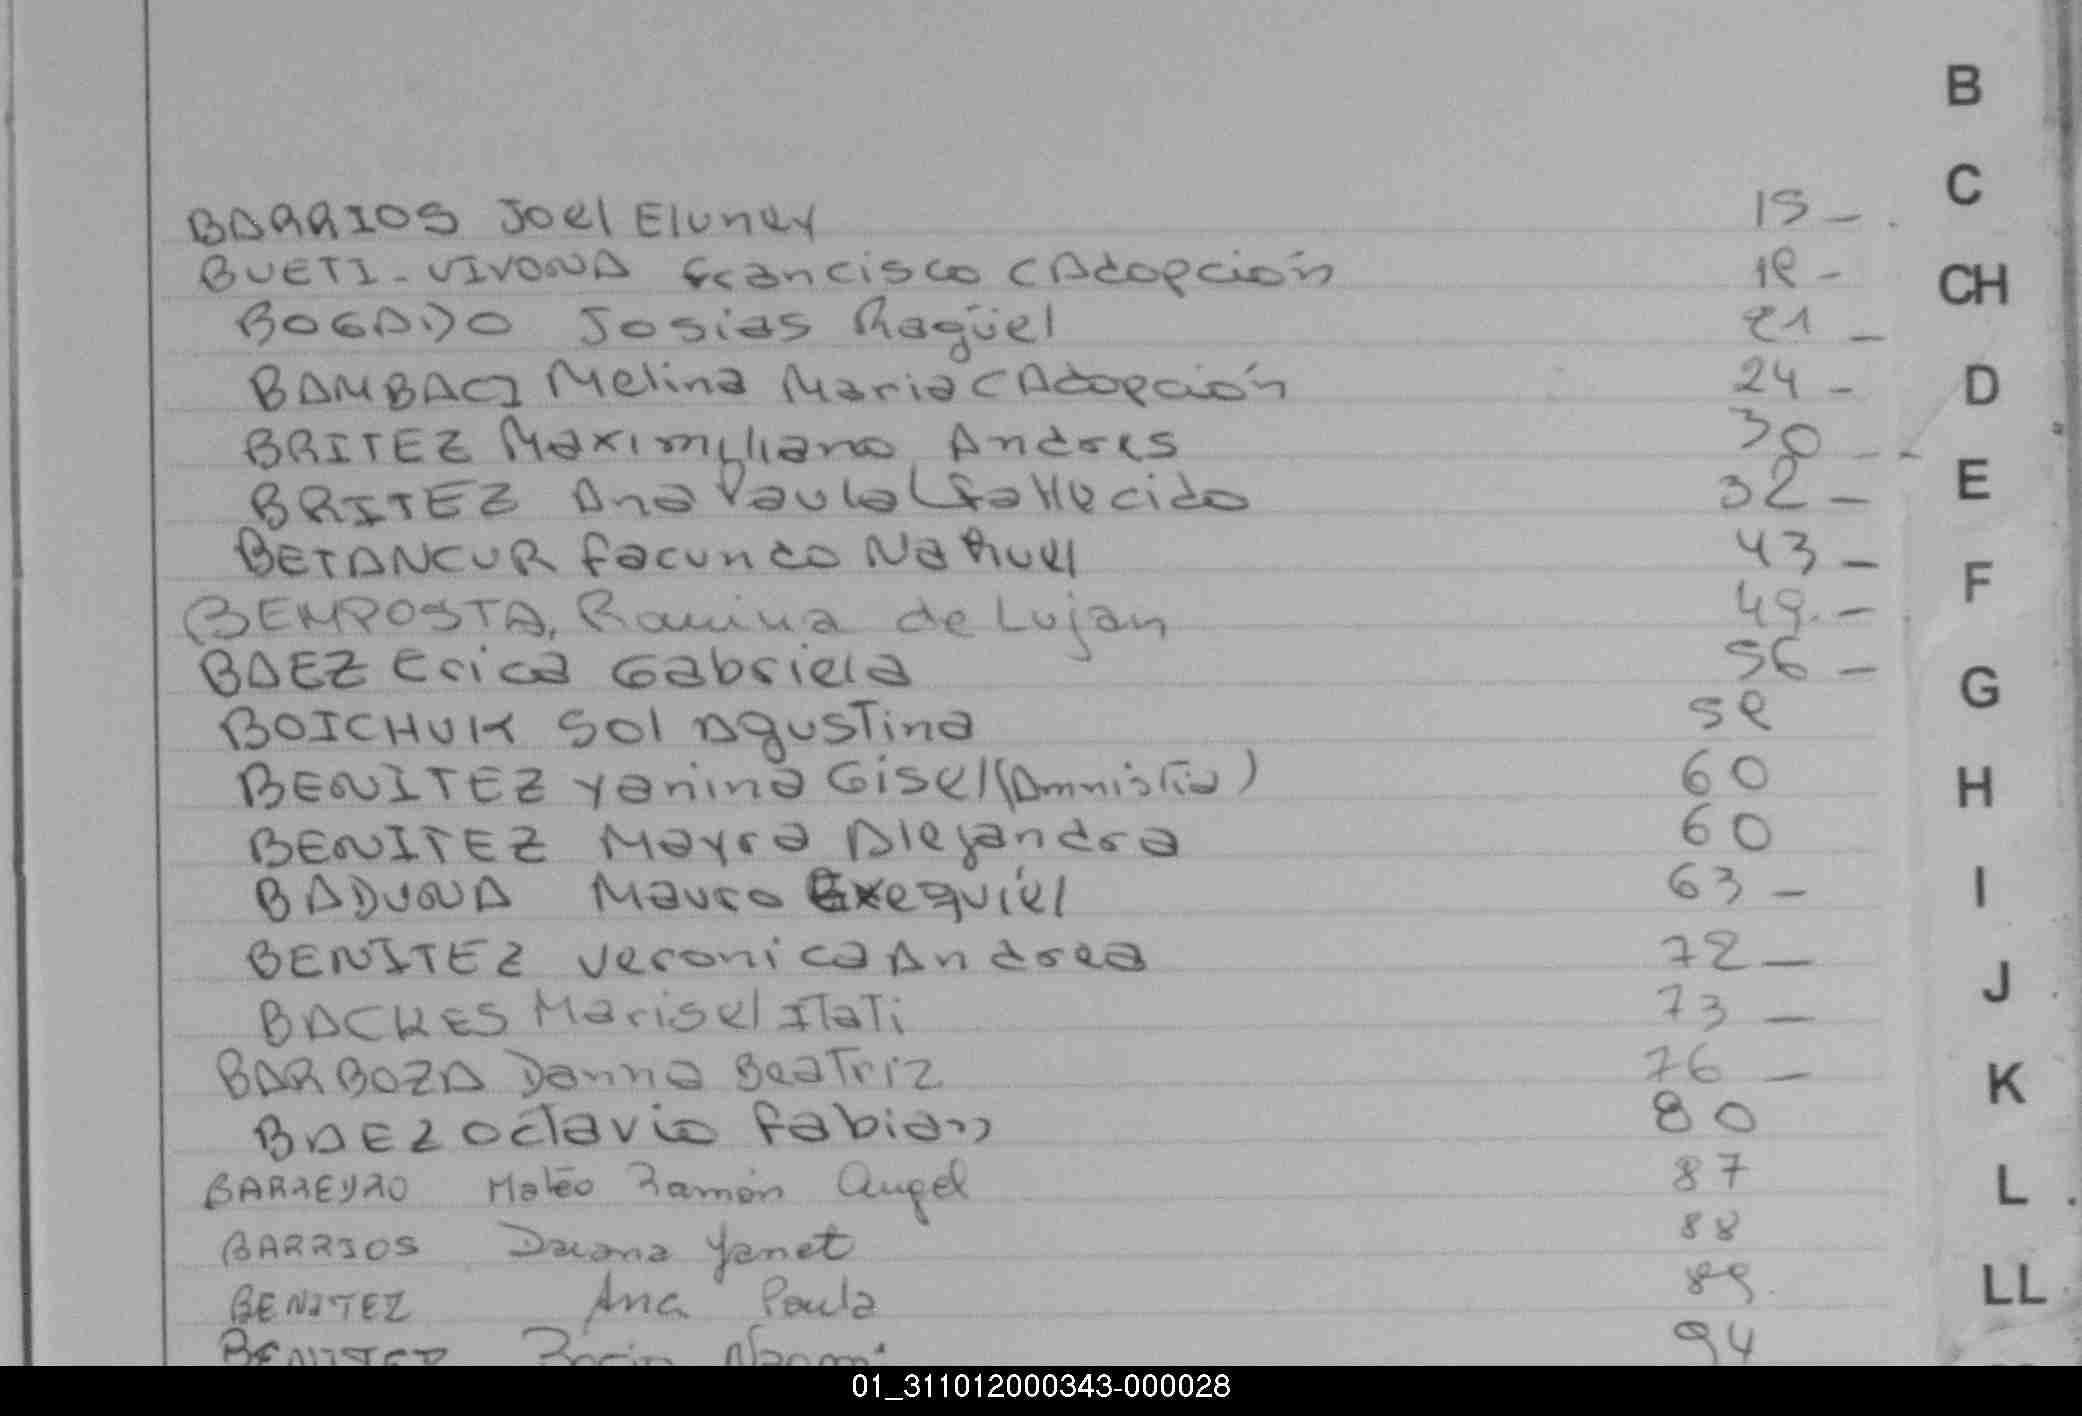 B
C
BARRIOS Joel Eluney 15 -
BUETI - VIVONA Francisco (Adopción 18 -
CH
BOGADO Josias Ragüel 21 -
BAMBACI Melina Maria (Adopción 24 -
D
BRITEZ Maximiliano Andres 30 -
BRITEZ Ana Paula (fallecido 32 -
E
BETANCUR facundo Nahuel 43 -
F
BEMPOSTA, Romina de Lujan 49. -
BAEZ Erica Gabriela 56 -
G
BOICHUK Sol Agustina 58
BENITEZ Yanina Gisel (Amnistia) 60
H
BENITEZ Mayra Alejandra 60
BADUNA Mauro Exequiel 63 -
I
BENITEZ Veronica Andrea 72 -
J
BACKES Marisel Itati 73 -
BARBOZA Danna Beatriz 76 -
K
BAEZ Octavio fabian 80
BARREYRO Mateo Ramón Angel 87
L
BARRIOS Daiana Yanet 88
BENITEZ Ana Paula 89
LL
BENITEZ Rocio Naomi 94
01_311012000343-000028